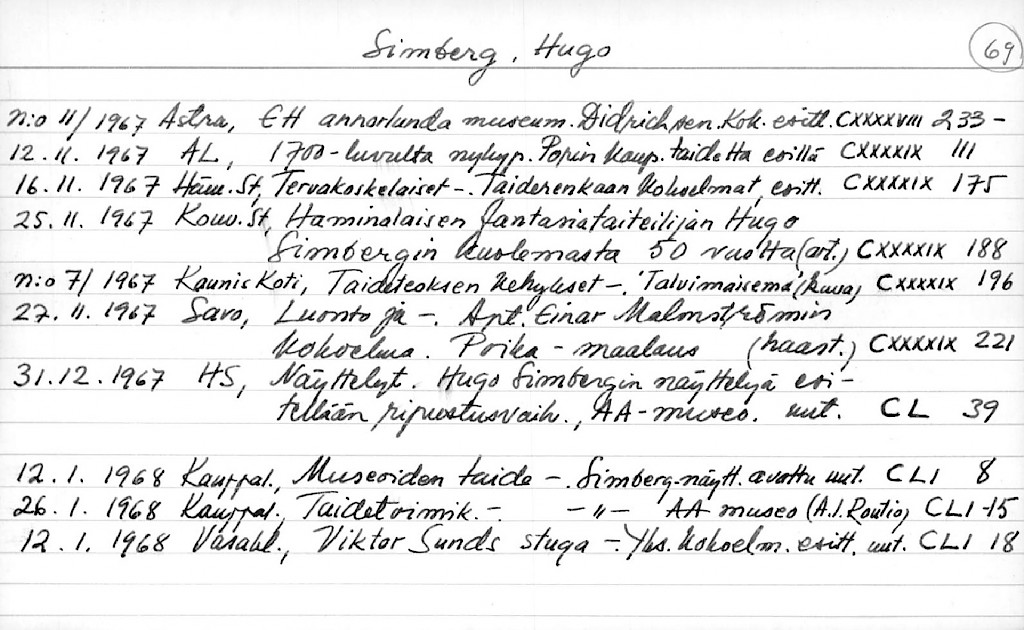 Simberg, Hugo 69
n:o 11/1967 Astra, Ett annorlunda museum. Didrichsen. Kok. esitt. CXXXXVIII 233-
12.11.1967 AL, 1700-luvulta nykyp. Porin kaup. taidetta esillä CXXXXIX 111
16.11.1967 Häm.St, Tervakoskelaiset -. Taiderenkaan kokoelmat, esitt. CXXXXIX 175
25.11.1967 Kouv.St, Haminalaisen fantasiataiteilijan Hugo
Simbergin kuolemasta 50 vuotta (art.) CXXXXIX 188
n:o 7/1967 Kaunis Koti, Taideteoksen kehykset -. 'Talvimaisema' (kuva) CXXXXIX 196
27.11.1967 Savo, Luonto ja -. Apt. Einar Malmströmin
kokoelma. Poika-maalaus (haast.) CXXXXIX 221
31.12.1967 HS, Näyttelyt. Hugo Simbergin näyttelyä esi-
tellään ripustusvaih., AA-museo. uut. CL 39
12.1.1968 Kauppal., Museoiden taide -. Simberg-näytt. avattu uut. CLI 8
26.1.1968 Kauppal., Taidetoimik. -. -"- AA-museo (A.I. Routio) CLI-15
12.1.1968 Vasabl., Viktor Sunds stuga -. Yks. kokoelm. esitt. uut. CLI 18